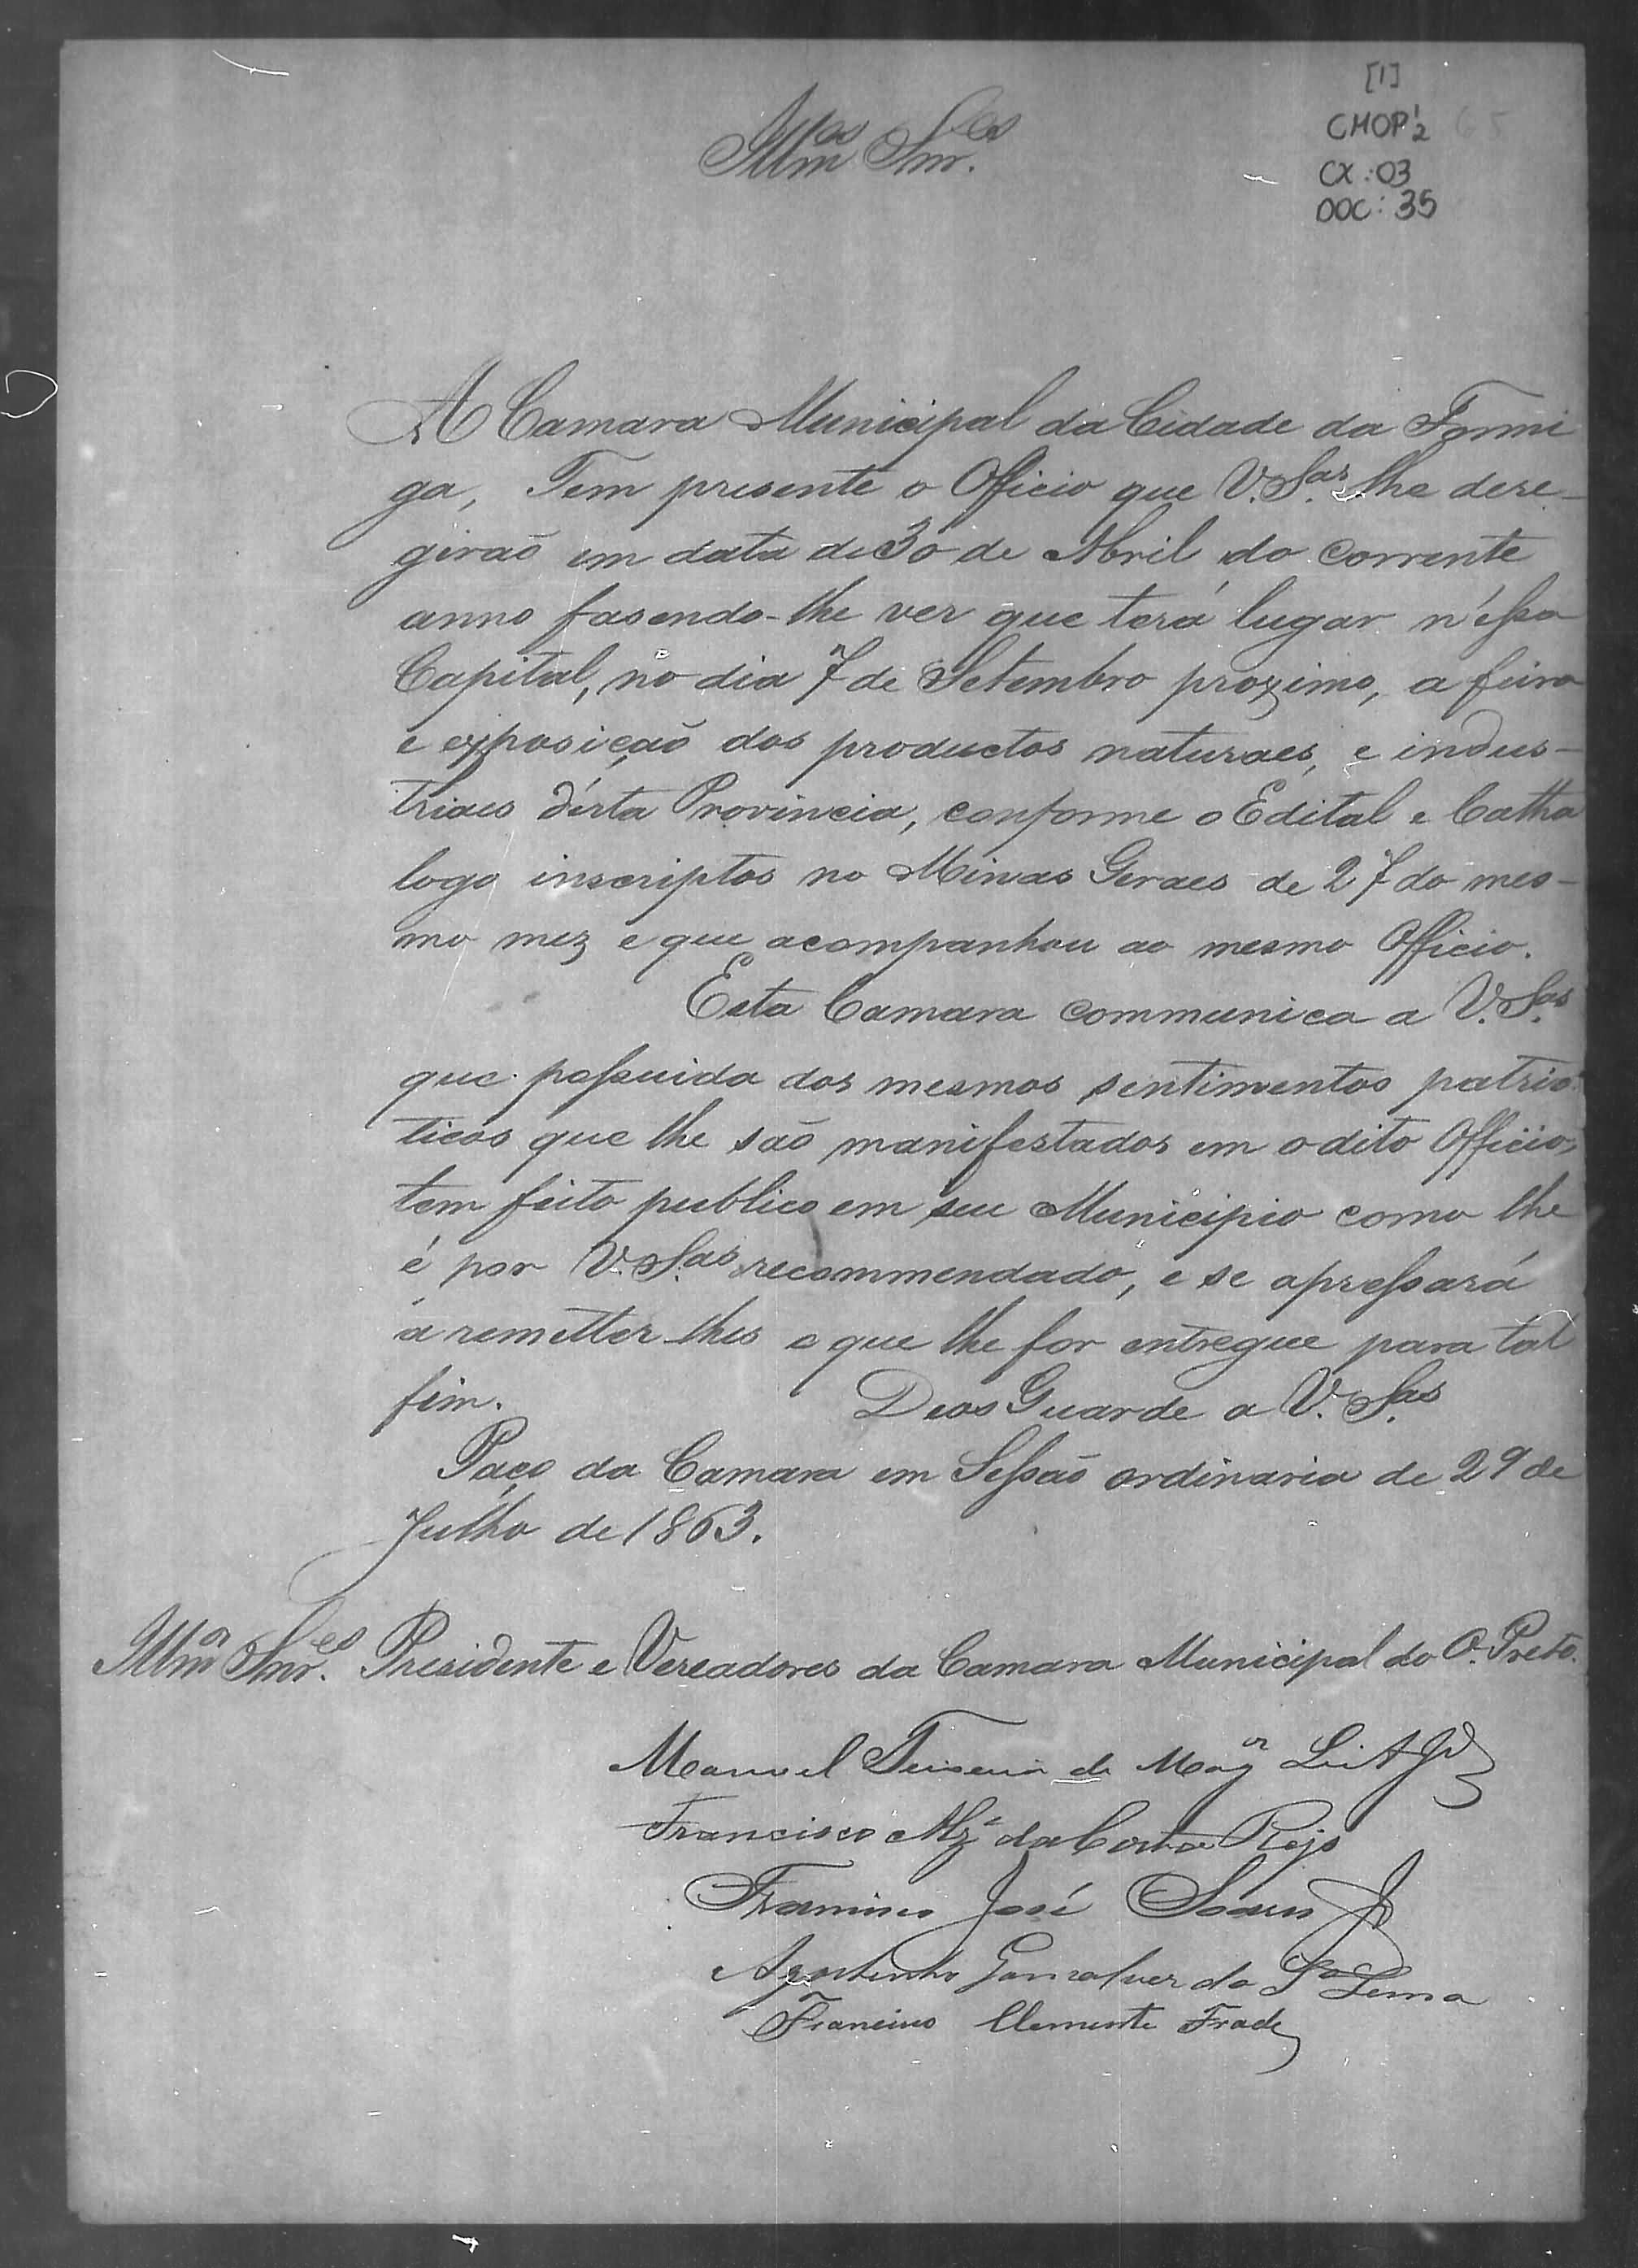 [1]
CMOP ½ 65
CX: 03
DOC: 35
Illmos Snr.es
A Camara Municipal da Cidade da Formi
ga, Tem presente o Officio que V. S.as lhe dere-
giraõ em data de 30 de Abril do corrente
anno fasendo-lhe ver que terá lugar n'essa
Capital, no dia 7 de Setembro proximo, a feira
e exposiçaõ dos productos naturaes, e indus-
triaes d'ésta Provincia, conforme o Edital e Catha
logo inscriptos no Minas Geraes de 27 do mes-
mo mez e que acompanhou ao mesmo Officio.
Esta Camara communica a V. S.as
que possuida dos mesmos sentimentos patrio
ticos que lhe saõ manifestados em o dito Officio,
tem feito publico em seu Municipio como lhe
é por V. S.as recommendado, e se apressará
á remetter-lhes o que lhe for entregue para tal
fim. Deos Guarde a V. S.as
Paço da Camara em Sessaõ ordinaria de 29 de
Julho de 1863.
Illmos Snr.es Presidente e Vereadores da Camara Municipal do O. Preto.
Manoel Teixeira de Mag.
Francisco da Costa Rejo
Francisco José Soares Jr
Agostinho Gonsalves da S.a Lema
Francisco Clemente Frade